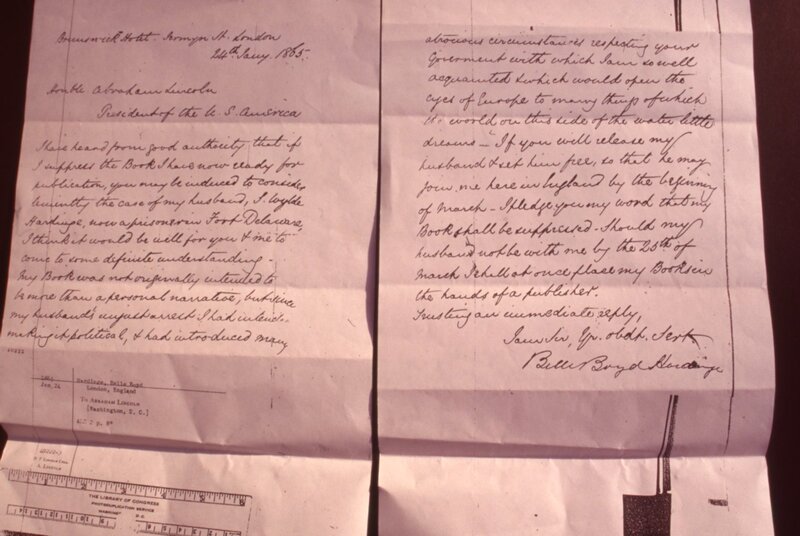 Brunswick Hotel. Jermyn St. London
24th Jany. 1865.
Honble Abraham Lincoln
President of the U. S. America
I have heard from good authority that if
I suppress the Book I have now ready for
publication, you may be induced to consider
leniently the case of my husband, S. Wylde
Hardinge, now a prisoner in Fort Delaware,
I think it would be well for you & me to
come to some definite understanding -
My Book was not originally intended to
be more than a personal narrative, but since
my husband's unjust arrest I had intended
making it political, & had introduced many
1865
Jan. 24
Hardinge, Belle Boyd
London, England
To Abraham Lincoln
[Washington, D. C.]
A. Lincoln
THE LIBRARY OF CONGRESS
PHOTODUPLICATION SERVICE
WASHINGTON D.C.
atrocious circumstances respecting your
Government with which I am so well
acquainted & which would open the
eyes of Europe to many things of which
the world on this side of the water little
dreams - If you will release my
husband & set him free, so that he may
join me here in England by the beginning
of March - I pledge you my word that my
Book shall be suppressed - Should my
husband not be with me by the 25th of
March I shall at once place my Book in
the hands of a publisher.
Trusting an immediate reply,
I am Sir, Yr. obdt. Servt.
Belle Boyd Hardinge